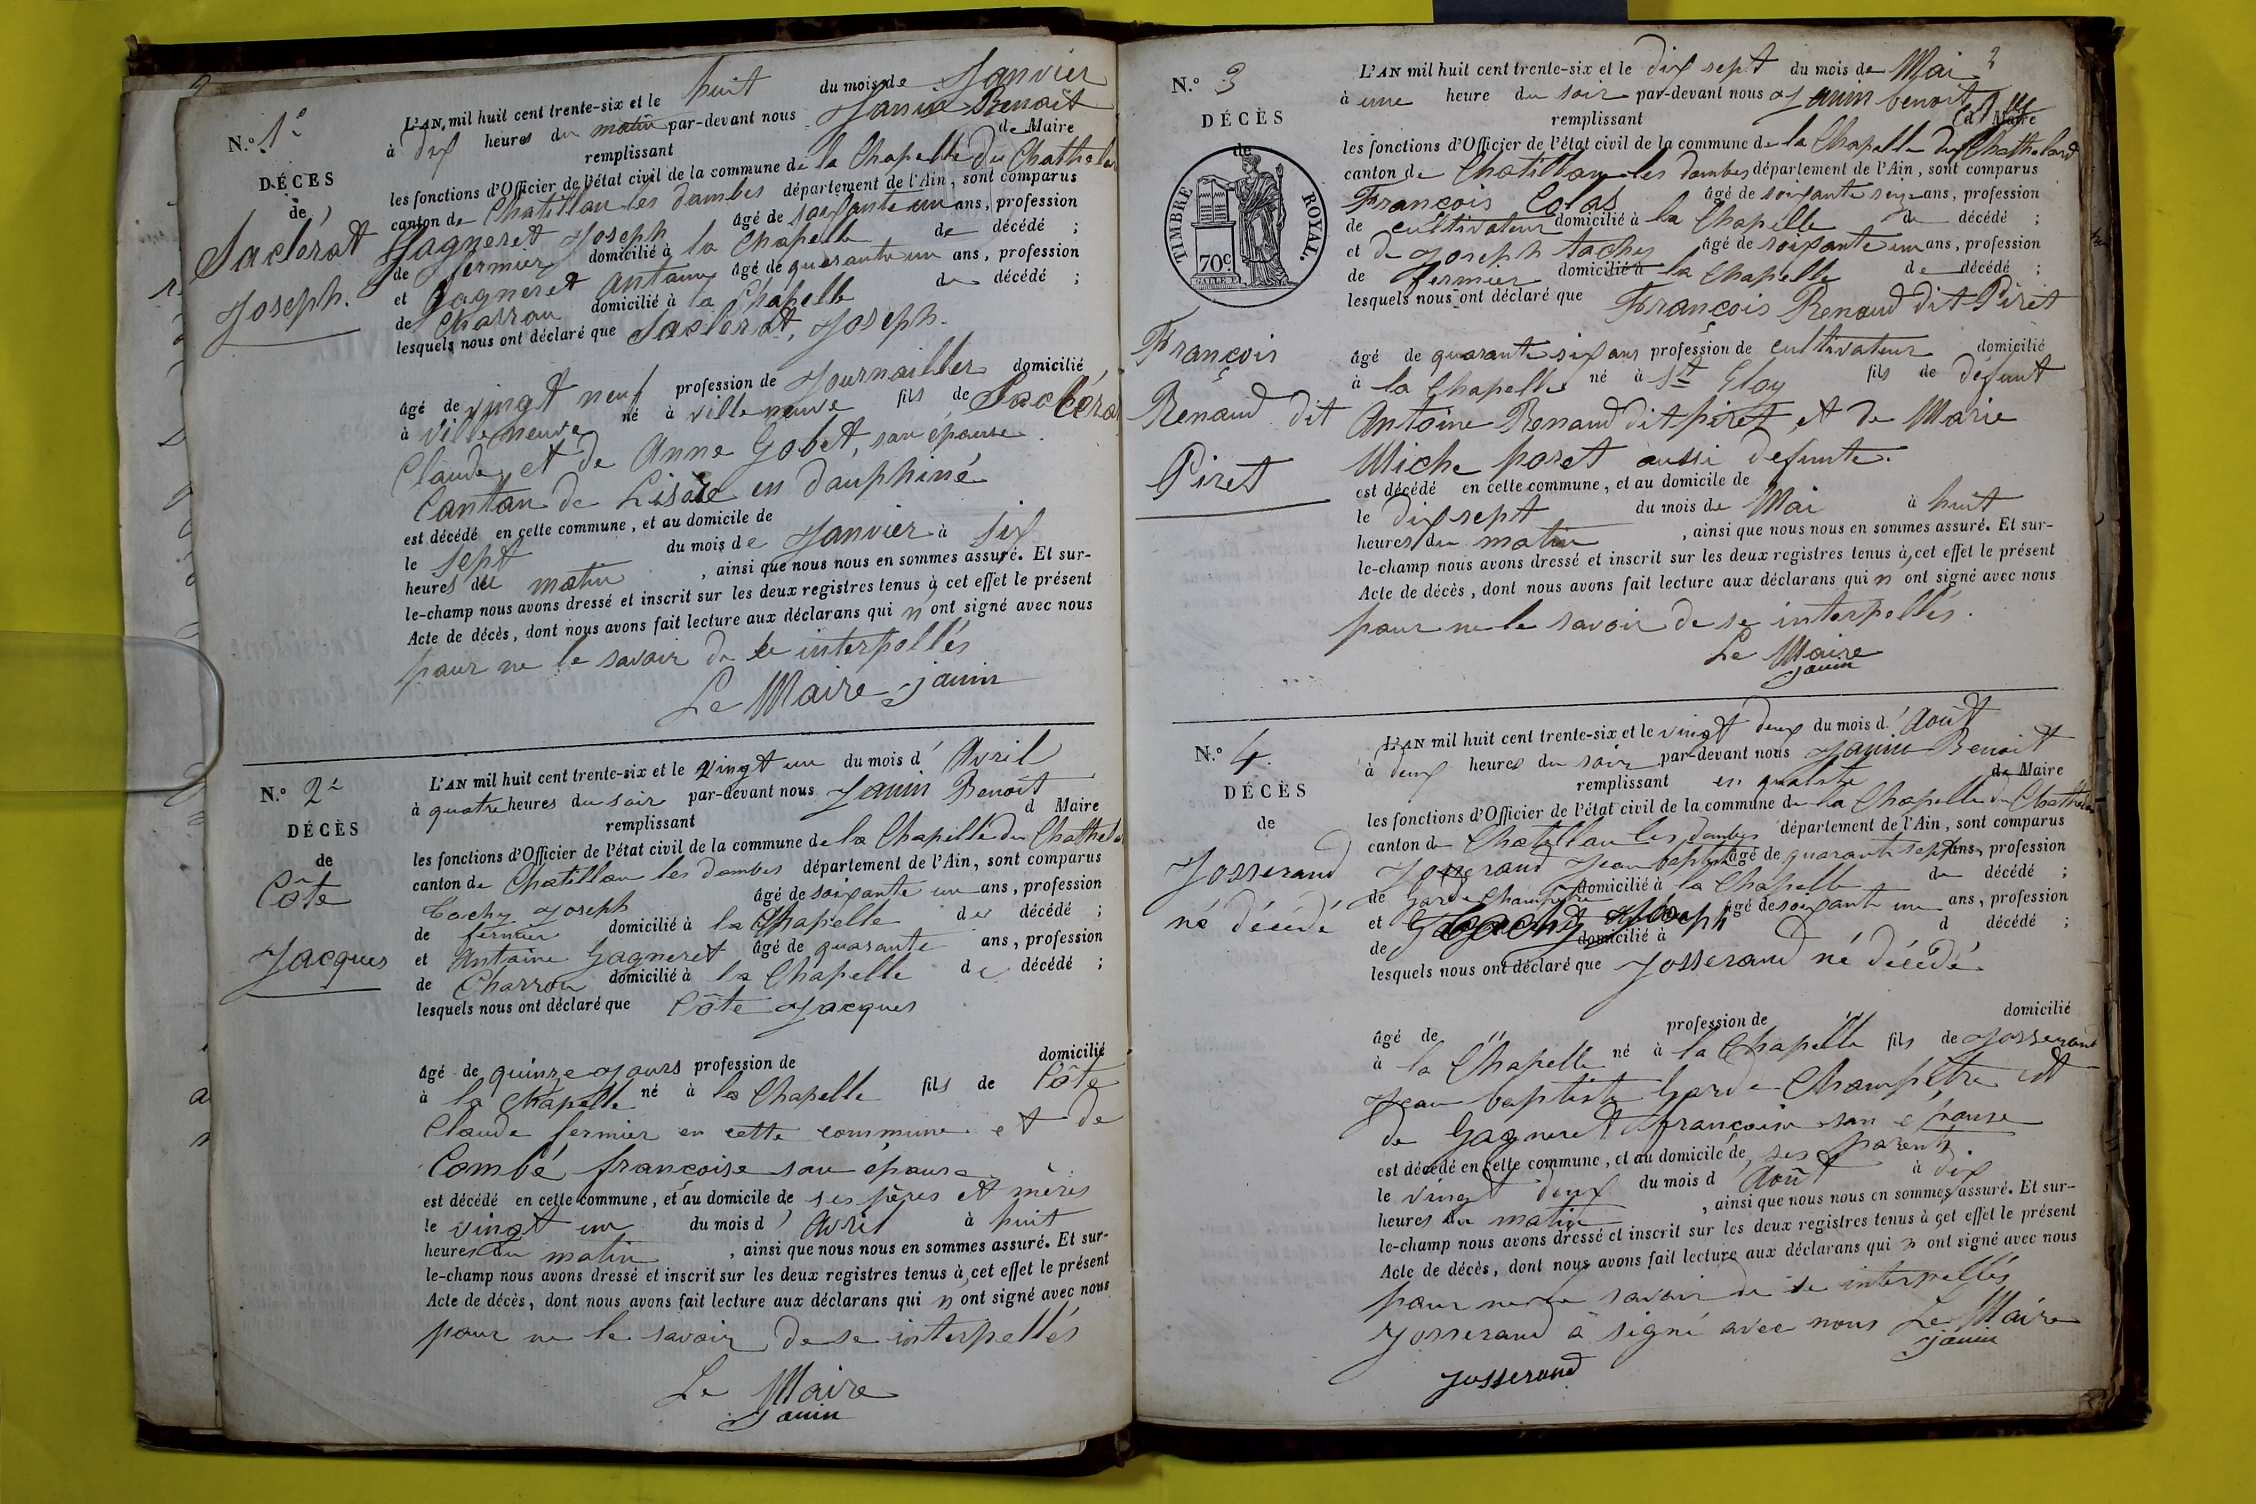 N.o 1e
DÉCES
de
Saclérat
Joseph.
L'AN mil huit cent trente-six et le huit du mois de Janvier
à dix heures du matin par-devant nous Janin Benoît
remplissant de Maire
les fonctions d'Officier de l'état civil de la commune de la Chapelle du Chathelar
canton de Chatillon les dombes département de l'Ain, sont comparus
Gagneret Joseph âgé de soixante un ans, profession
de fermier domicilié à la Chapelle de décédé ;
et Gagneret Antoine âgé de quarante un ans, profession
de Charron domicilié à la Chapelle de décédé ;
lesquels nous ont déclaré que Saclerat, Joseph.
âgé de vingt neuf profession de Journallier domicilié
à Villeneuve né à villeneuve fils de Saclérat
Claude, et de Anne Gobet, son épouse
Canton de en dauphiné
est décédé en cette commune, et au domicile de
le sept du mois de Janvier à six
heures du matin , ainsi que nous nous en sommes assuré. Et sur-
le-champ nous avons dressé et inscrit sur les deux registres tenus à cet effet le présent
Acte de décès, dont nous avons fait lecture aux déclarans qui n ont signé avec nous
pour ne le savoir de se interpellés
Le Maire janin
N.o 2e
DÉCÈS
de
Côte
Jacques
L'AN mil huit cent trente-six et le vingt un du mois d'Avril
à quatre heures du soir par-devant nous Janin Benoît
remplissant d Maire
les fonctions d'Officier de l'état civil de la commune de la Chapelle du Chathela
canton de Chatillon les dombes département de l'Ain, sont comparus
Tachy Joseph âgé de soixante un ans, profession
de fermier domicilié à la Chapelle de décédé ;
et Antoine Gagneret âgé de quarante ans, profession
de Charron domicilié à la Chapelle de décédé ;
lesquels nous ont déclaré que Côte Jacques
âgé de quinze Jours profession de domicilié
à la Chapelle né à la Chapelle fils de Côte
Claude fermier en cette commune et de
Combé françoise son épouse
est décédé en cette commune, et au domicile de ses pères et mères
le vingt un du mois d'Avril à huit
heures du matin , ainsi que nous nous en sommes assuré. Et sur-
le-champ nous avons dressé et inscrit sur les deux registres tenus à cet effet le présent
Acte de décès, dont nous avons fait lecture aux déclarans qui n ont signé avec nous
pour ne le savoir de se interpellés
Le Maire
janin
2
N.o 3
DÉCÈS
de
TIMBRE ROYAL.
70c
François
Renaud dit
Piret
L'AN mil huit cent trente-six et le dix sept du mois de Mai
à une heure du soir par-devant nous Janin benoit
remplissant d Maire
les fonctions d'Officier de l'état civil de la commune de la Chapelle du Chathelard
canton de Chatillon les dombes département de l'Ain, sont comparus
François Colas âgé de soixante seize ans, profession
de cultivateur domicilié à la Chapelle de décédé ;
et de Joseph tachy âgé de soixante un ans, profession
de fermier domicilié à la Chapelle de décédé ;
lesquels nous ont déclaré que François Renaud dit Piret
âgé de quarante six ans profession de cultivateur domicilié
à la Chapelle né à St Eloy fils de défunt
Antoine Renaud dit piret, et de Marie
Miche poret aussi defunte.
est décédé en cette commune, et au domicile de
le dix sept du mois de Mai à huit
heures du matin , ainsi que nous nous en sommes assuré. Et sur-
le-champ nous avons dressé et inscrit sur les deux registres tenus à cet effet le présent
Acte de décès, dont nous avons fait lecture aux déclarans qui n ont signé avec nous
pour ne le savoir de se interpellés.
Le Maire
janin
N.o 4
DÉCÈS
de
Josserand
né décédé
L'AN mil huit cent trente-six et le vingt deux du mois d'Août
à deux heures du soir par-devant nous Janin Benoit
remplissant en qualité de Maire
les fonctions d'Officier de l'état civil de la commune de la Chapelle du Chathelar
canton de Chatillon les dombes département de l'Ain, sont comparus
Josserand Jean baptiste âgé de quarante sept ans, profession
de Garde Champêtre domicilié à la Chapelle de décédé ;
et Tachy Joseph âgé de soixante un ans, profession
de domicilié à d décédé ;
lesquels nous ont déclaré que Josserand né décédé
âgé de profession de domicilié
à la Chapelle né à la Chapelle fils de Josserand
Jean baptiste Garde Champêtre et
de Gagneret françoise son épouse
est décédé en cette commune, et au domicile de ses parents
le vingt deux du mois d Août à dix
heures du matin , ainsi que nous nous en sommes assuré. Et sur-
le-champ nous avons dressé et inscrit sur les deux registres tenus à cet effet le présent
Acte de décès, dont nous avons fait lecture aux déclarans qui n ont signé avec nous
pour ne le savoir de se interpellés
Josserand à signé avec nous Le Maire
janin
Josserand